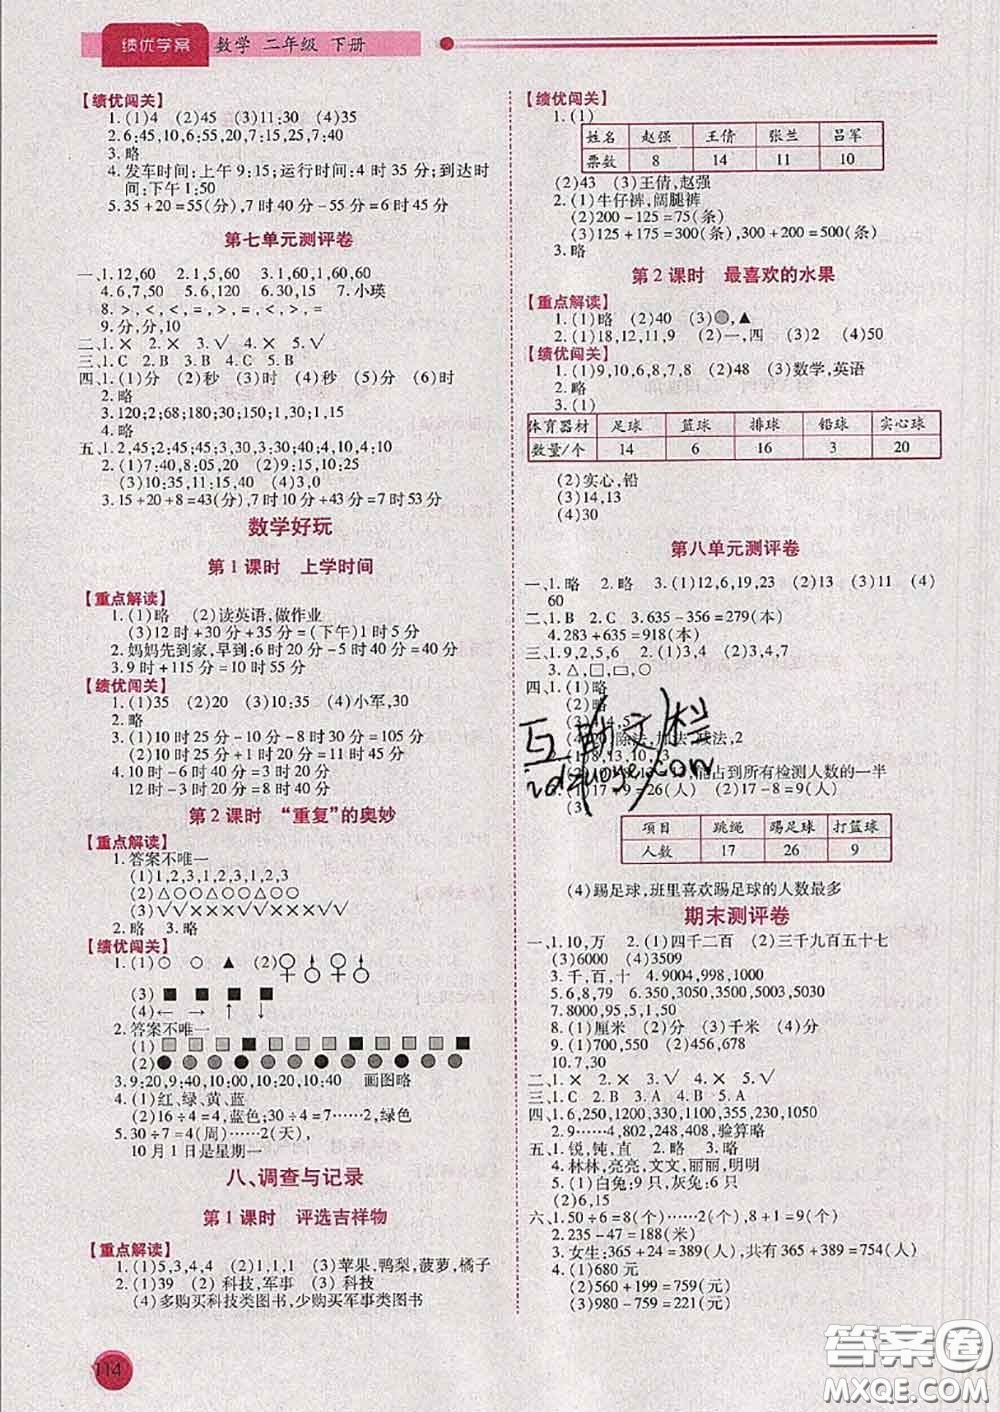 绩优学案 数学 二年级 下册
【绩优闯关】
1.(1)4 (2)45 (3)11:30 (4)35
2.6:45,10,6:55,20,7:15,25,7:40
3.略
4.发车时间:上午 9:15;运行时间:4 时 35 分;到达时
间:下午1:50
5.35+20=55(分),7 时 40 分-55 分=6 时 45 分
第七单元测评卷
一、1.12,60 2.1,5,60 3.6,1,80,1,60
4.6,7,50 5.120,6 6.9,6,150 7.小瑛
8.>,<,<,=,>,=,<,>,=
9.分,分,10
二、1.× 2.× 3.√ 4.× 5.√
三、1.C 2.B 3.B 4.C
四、1.(1)分 (2)秒 (3)时 (4)秒 (5)分 (6)时
2.略
3.120;2;68;180;30;150;1,50;1,30
4.略
五、1.2,45;2;45;3,30,3:30;40;4,10;4:10
2.(1)7:40,8:05,20 (2)9:15,10:25
(3)10:35,11:15,40 (4)3,0
3.15+20+8=43(分),7 时 10 分+43 分=7 时 53 分
数学好玩
第 1 课时 上学时间
【重点解读】
1.(1)略 (2)读英语,做作业
(3)12 时+30 分+35 分=(下午)1 时 5 分
2.妈妈先到家,早到:6 时 20 分-5 时 40 分=40 分
3.9 时+115 分=10 时 55 分
【绩优闯关】
1.(1)35 (2)20 (3)10:35 (4)小军,30
2.略
3.(1)10 时 25 分-10 分-8 时 30 分=105 分
(2)10 时 25 分+1 时 20 分=11 时 45 分
4.10 时-6 时 40 分=3 时 20 分
12 时-8 时 40 分=3 时 20 分
第 2 课时 “重复”的奥妙
【重点解读】
1.答案不唯一
(1)1,2,3,1,2,3,1,2,3
(2)△○○△○○△○○△○○
(3)√√××√√××√√××√√××
2.略 3.略
【绩优闯关】
1.(1)○ ○ ▲ (2)♀♂♀♂
(3)■ ■ ■ ■
(4)← → ↑ ↓
2.答案不唯一
(1)
(2)
3.9:20,9:40,10:00,10:20,10:40 画图略
4.(1)红、绿、黄、蓝
(2)16÷4=4,蓝色;30÷4=7……2,绿色
5.30÷7=4(周)……2(天),
10 月 1 日是星期一
八、调查与记录
第 1 课时 评选吉祥物
【重点解读】
1.(1)5,3,4,4 (2)1,1,1 (3)苹果,鸭梨,菠萝,橘子
2.(1)39 (2)科技,军事 (3)科技
(4)多购买科技类图书,少购买军事类图书
114
【绩优闯关】
1.(1)
姓名 赵强 王倩 张兰 吕军
票数 8 14 11 10
(2)43 (3)王倩,赵强
2.(1)牛仔裤,阔腿裤
(2)200-125=75(条)
(3)125+175=300(条),300+200=500(条)
3.略
第 2 课时 最喜欢的水果
【重点解读】
1.(1)略 (2)40 (3)●,▲
2.(1)18,12,11,9 (2)一,四 (3)2 (4)50
【绩优闯关】
1.(1)9,10,6,8,7,8 (2)48 (3)数学,英语
2.略
3.(1)
体育器材 足球 篮球 排球 铅球 实心球
数量/个 14 6 16 3 20
(2)实心,铅
(3)14,13
(4)30
第八单元测评卷
一、1.略 2.略 3.(1)12,6,19,23 (2)13 (3)11 (4)
60
二、1.B 2.C 3.635-356=279(本)
4.283+635=918(本)
三、1.9,2,5,6 2.(1)3,4 (2)3,4,7
3.△,□,▭,○
四、1.(1)略
(2)略
除法,减法,2
能占到所有检测人数的一半
=26(人) (2)17-8=9(人)
项目 跳绳 踢足球 打篮球
人数 17 26 9
(4)踢足球,班里喜欢踢足球的人数最多
期末测评卷
一、1.10,万 2.(1)四千二百 (2)三千九百五十七
(3)6000 (4)3509
3.千,百,十 4.9004,998,1000
5.6,8,79 6.350,3050,5003,5030
7.8000,95,5,1,50
8.(1)厘米 (2)分 (3)千米 (4)分
9.(1)700,550 (2)456,678
10.7,30
二、1.× 2.× 3.√ 4.× 5.√
三、1.C 2.B 3.A 4.B 5.A
四、1.6,250,1200,330,1100,355,230,1050
2.9……4,802,248,408,验算略
五、1.锐,钝,直 2.略 3.略
4.林林,亮亮,文文,丽丽,明明
5.(1)白兔:9 只,灰兔:6 只
(2)6,15
六、1.50÷6=8(个)……2(个),8+1=9(个)
2.235-47=188(米)
3.女生:365+24=389(人),共有 365+389=754(人)
4.(1)680 元
(2)560+199=759(元)
(3)980-759=221(元)
互助文档
答案圈
MXQE.COM